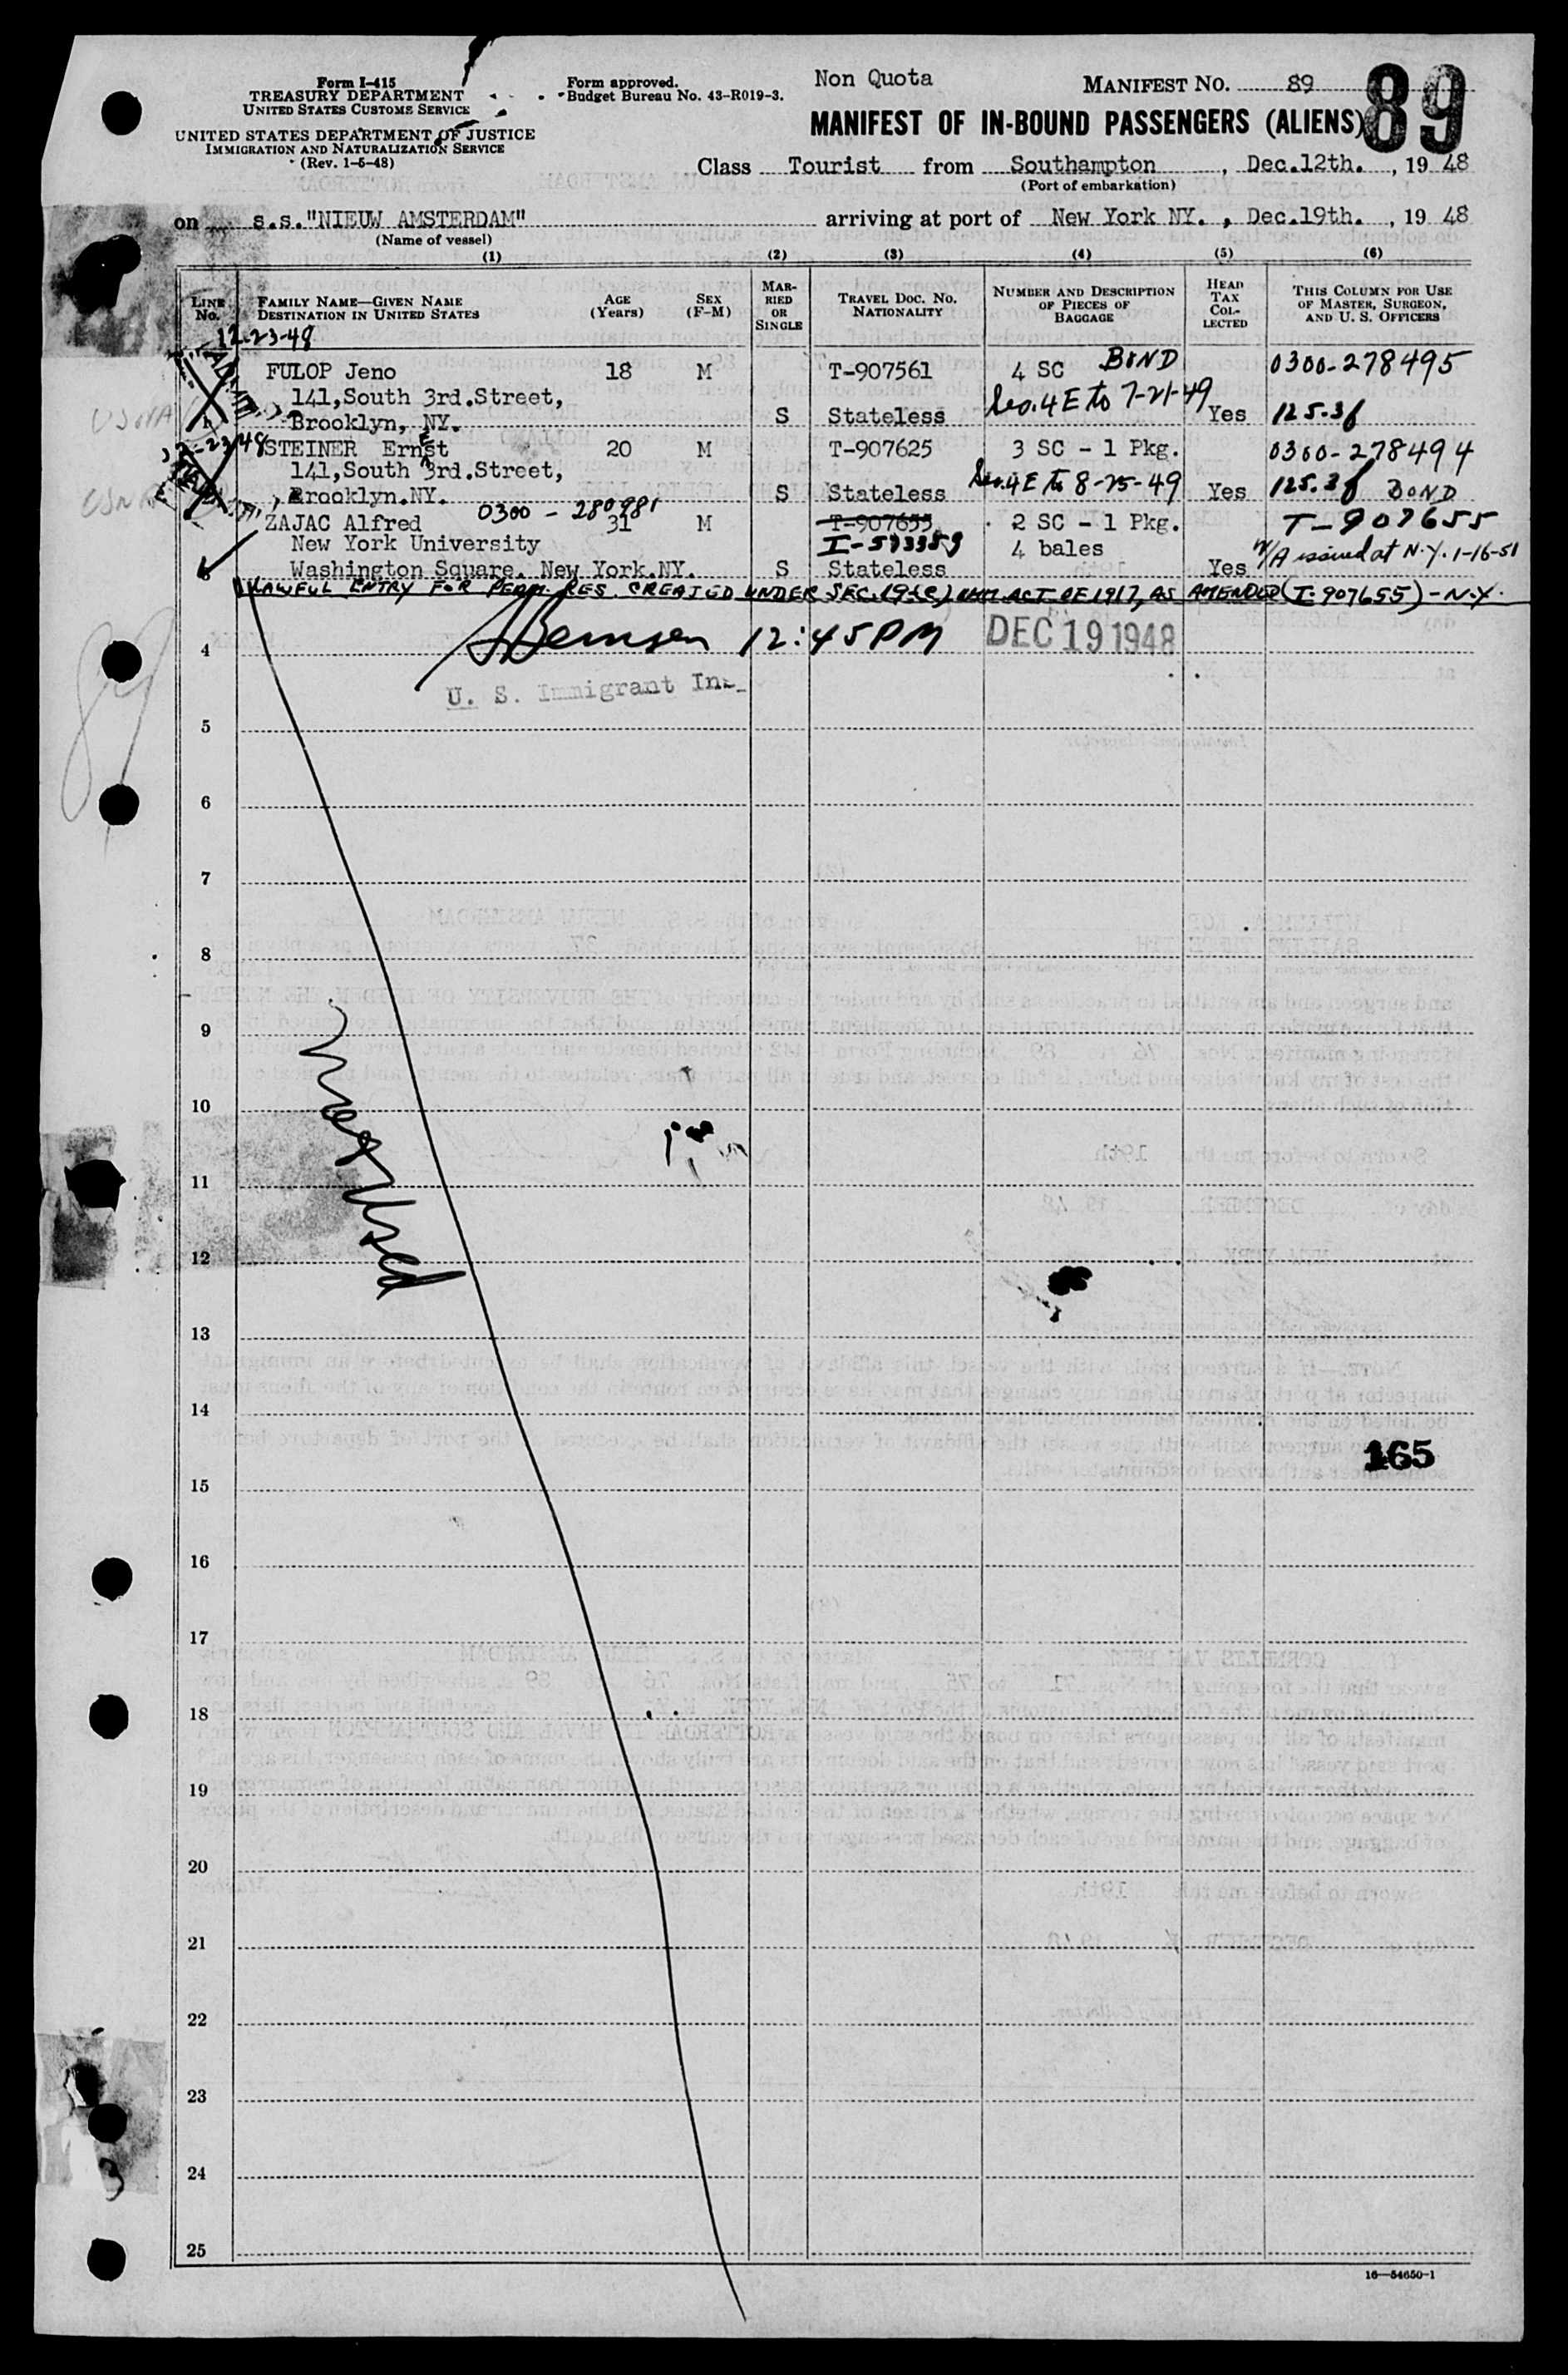 Form I-415
TREASURY DEPARTMENT
UNITED STATES CUSTOMS SERVICE
UNITED STATES DEPARTMENT OF JUSTICE
IMMIGRATION AND NATURALIZATION SERVICE
(Rev. 1-5-48)
Form approved.
Budget Bureau No. 43-R019-3.
Non Quota
MANIFEST NO. 89
89
MANIFEST OF IN-BOUND PASSENGERS (ALIENS)
Class Tourist from Southampton, Dec.12th., 1948
(Port of embarkation)
on s.s."NIEUW AMSTERDAM" arriving at port of New York NY., Dec.19th., 1948
(Name of vessel)
(1) (2) (3) (4) (5) (6)
LINE No.
FAMILY NAME—GIVEN NAME
DESTINATION IN UNITED STATES
AGE (Years)
SEX (F-M)
MARRIED OR SINGLE
TRAVEL DOC. NO. NATIONALITY
NUMBER AND DESCRIPTION OF PIECES OF BAGGAGE
HEAD TAX COLLECTED
THIS COLUMN FOR USE OF MASTER, SURGEON, AND U. S. OFFICERS
12-23-48
FULOP Jeno 18 M T-907561 4 SC BOND 0300-278495
141,South 3rd.Street, Sec.4E to 7-21-49
Brooklyn, NY. S Stateless Yes 125.3f
12-23/48
STEINER Ernst 20 M T-907625 3 SC - 1 Pkg. 0300-278494
141,South 3rd.Street, Sec.4E to 8-25-49
Brooklyn.NY. S Stateless Yes 125.3f BOND
0300-280981
ZAJAC Alfred 31 M T-907655 2 SC - 1 Pkg. T-907655
New York University I-593389 4 bales
Washington Square, New York.NY. S Stateless Yes N/A issued at N.Y. 1-16-51
LAWFUL ENTRY FOR PERM. RES. CREATED UNDER SEC. 19(c) IMM. ACT OF 1917, AS AMENDED (T-907655) - N.Y.
12:45PM DEC 19 1948
U. S. Immigrant Ins
4
5
6
7
8
9
10
11
12
13
14
165
15
16
17
18
19
20
21
22
23
24
25
3
16—54650-1